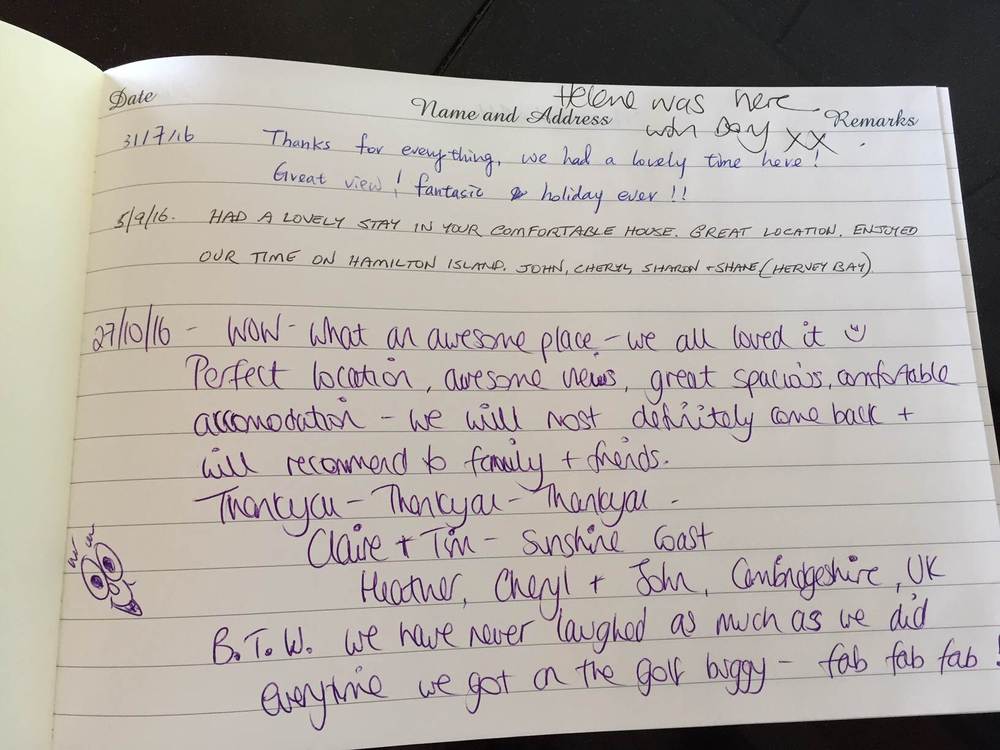 Date Name and Address Remarks
Helene was here
with Day xx.
31/7/16 Thanks for everything, we had a lovely time here!
Great view! fantasic holiday ever!!
5/9/16. HAD A LOVELY STAY IN YOUR COMFORTABLE HOUSE. GREAT LOCATION. ENJOYED
OUR TIME ON HAMILTON ISLAND. JOHN, CHERYL, SHARON + SHANE (HERVEY BAY)
27/10/16 - WOW - what an awesome place - we all loved it
Perfect location, awesome views, great spacious, comfortable
accomodation - we will most definitely come back +
will recommend to family + friends.
Thankyou - Thankyou - Thankyou -
Claire + Tim - Sunshine Coast
Heather, Cheryl + John, Cambridgeshire, UK
B.T.W. we have never laughed as much as we did
everytime we got on the golf buggy - fab fab fab!